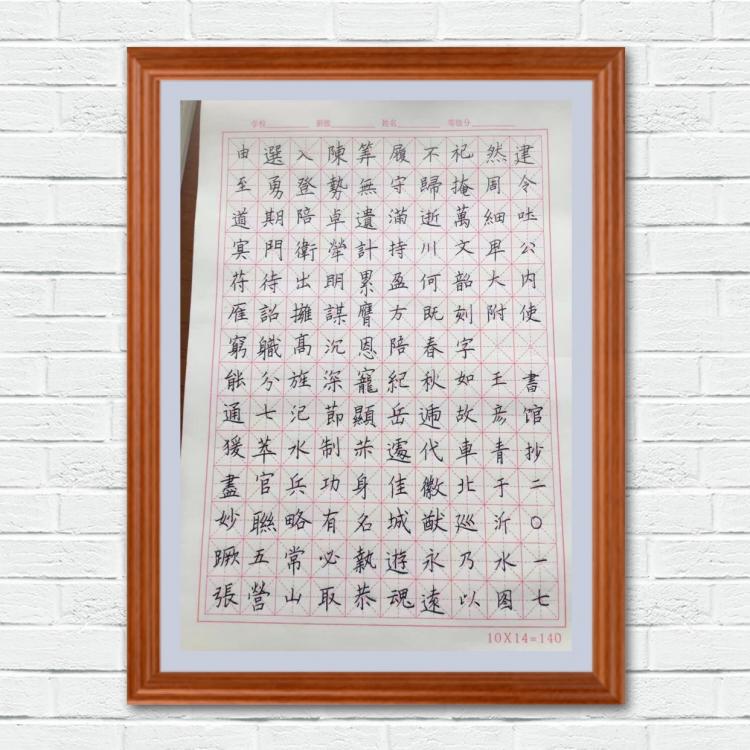 学校 班级 姓名 等级分
由至道冥苻雁窮能通猨盡妙蹶張
選勇期門待詔軄分七萃官聯五營
入登陪衛出擁髙旌汜水兵略常山
陳勢卓犖明謀沉深節制功有必取
筭無遺計累膺恩寵顯茀身名執恭
履守滿持盈方陪紀岳遽佳城遊魂
不歸逝川何既春秋遞代徽猷永遠
祀掩萬文韶刻字如故車北巡乃以
然周細卑大附 王彦青于沂水图
建令公内使 書馆抄二〇一七
10X14=140